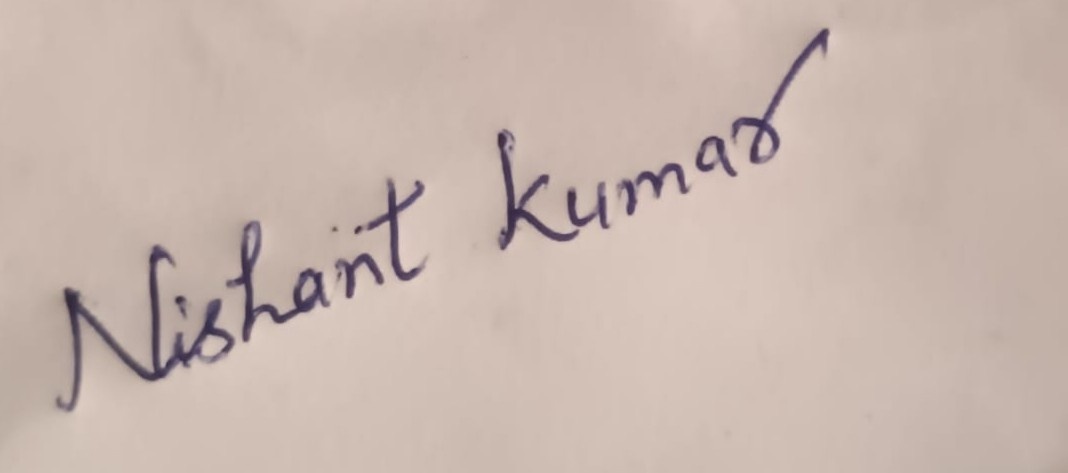 Nishant Kumar